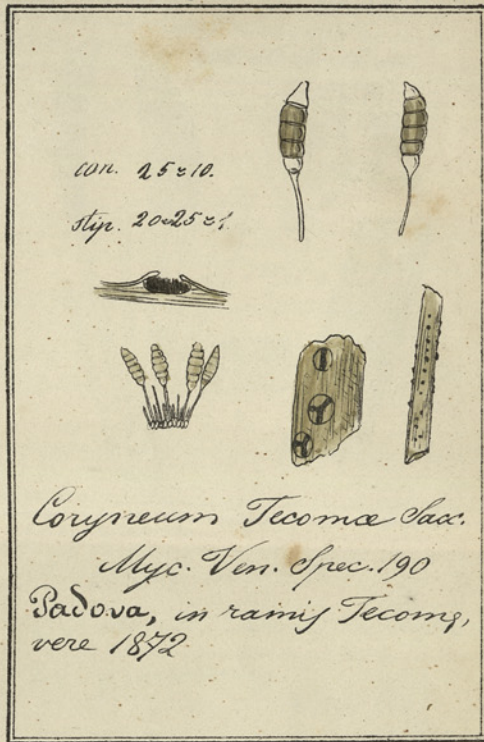 con. 25≈10.
stip. 20≈25≈1
Coryneum Tecomæ Sacc.
Myc. Ven. Spec. 190
Padova, in ramis Tecomę,
vere 1872